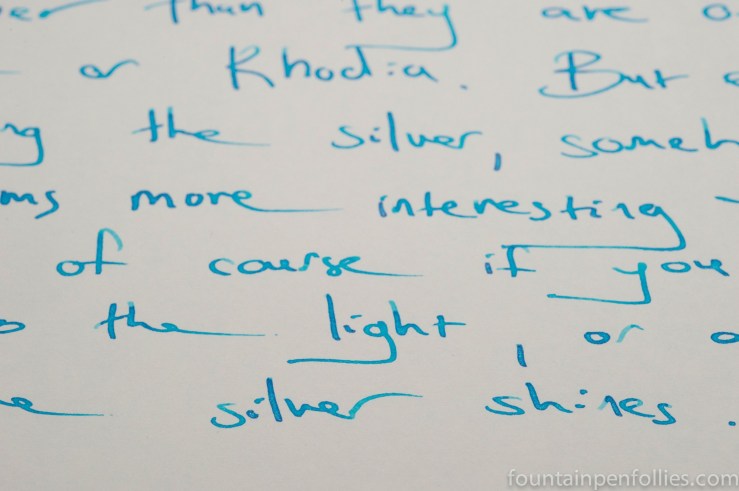 er than they are o
or Rhodia. But
ng the silver, someh
ms more interesting
of course if you
o the light, or o
e silver shines.
fountainpenfollies.com